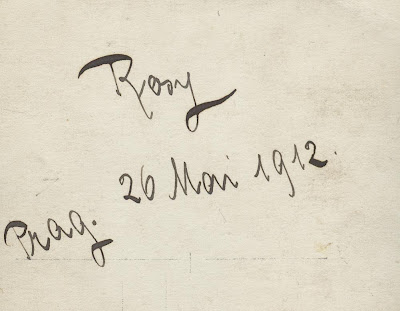 Rosy
Prag. 26 Mai 1912.